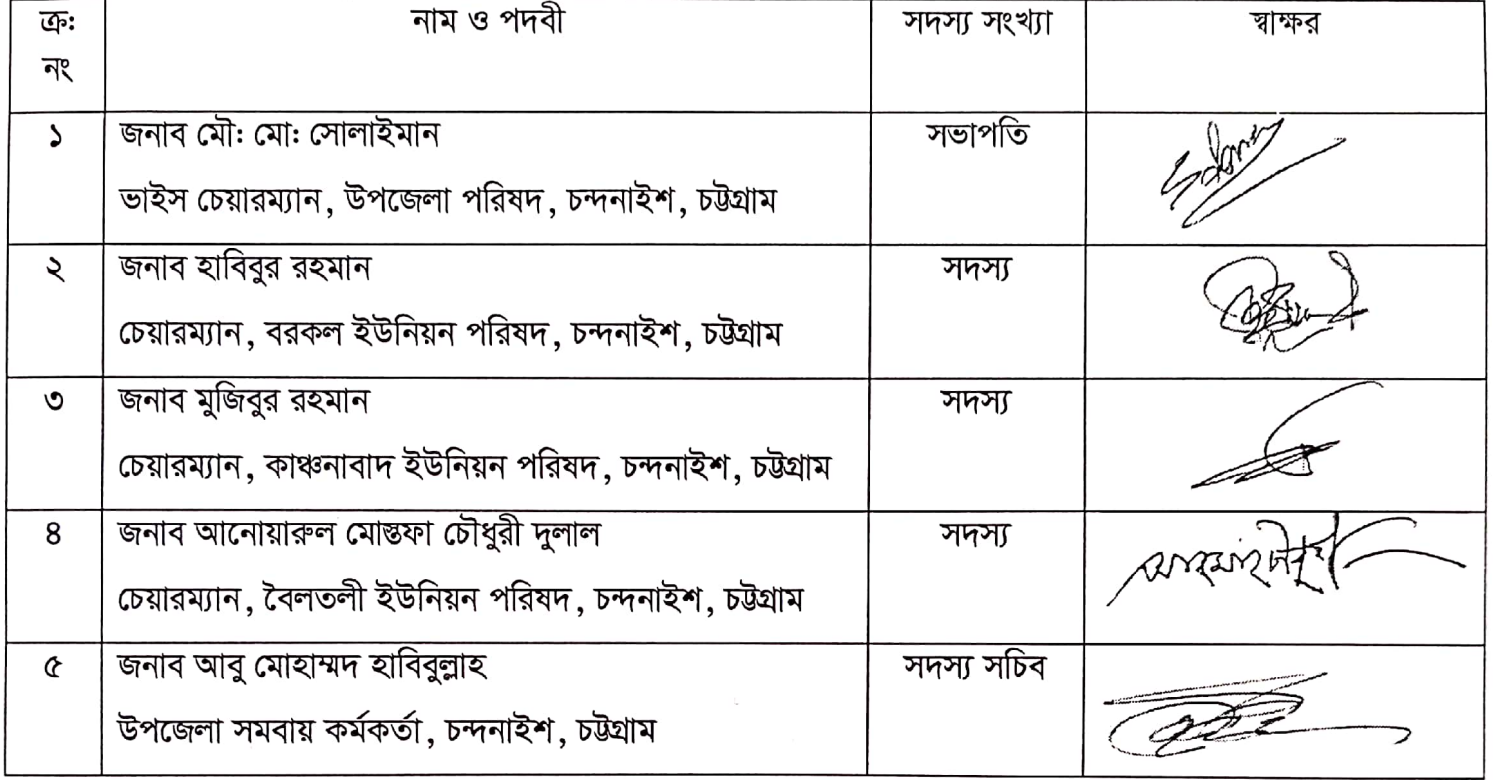 ক্র: নাম ও পদবী সদস্য সংখ্যা স্বাক্ষর
নং
১ জনাব মৌ: মো: সোলাইমান সভাপতি
ভাইস চেয়ারম্যান, উপজেলা পরিষদ, চন্দনাইশ, চট্টগ্রাম
২ জনাব হাবিবুর রহমান সদস্য
চেয়ারম্যান, বরকল ইউনিয়ন পরিষদ, চন্দনাইশ, চট্টগ্রাম
৩ জনাব মুজিবুর রহমান সদস্য
চেয়ারম্যান, কাঞ্চনাবাদ ইউনিয়ন পরিষদ, চন্দনাইশ, চট্টগ্রাম
৪ জনাব আনোয়ারুল মোস্তফা চৌধুরী দুলাল সদস্য
চেয়ারম্যান, বৈলতলী ইউনিয়ন পরিষদ, চন্দনাইশ, চট্টগ্রাম
৫ জনাব আবু মোহাম্মদ হাবিবুল্লাহ সদস্য সচিব
উপজেলা সমবায় কর্মকর্তা, চন্দনাইশ, চট্টগ্রাম